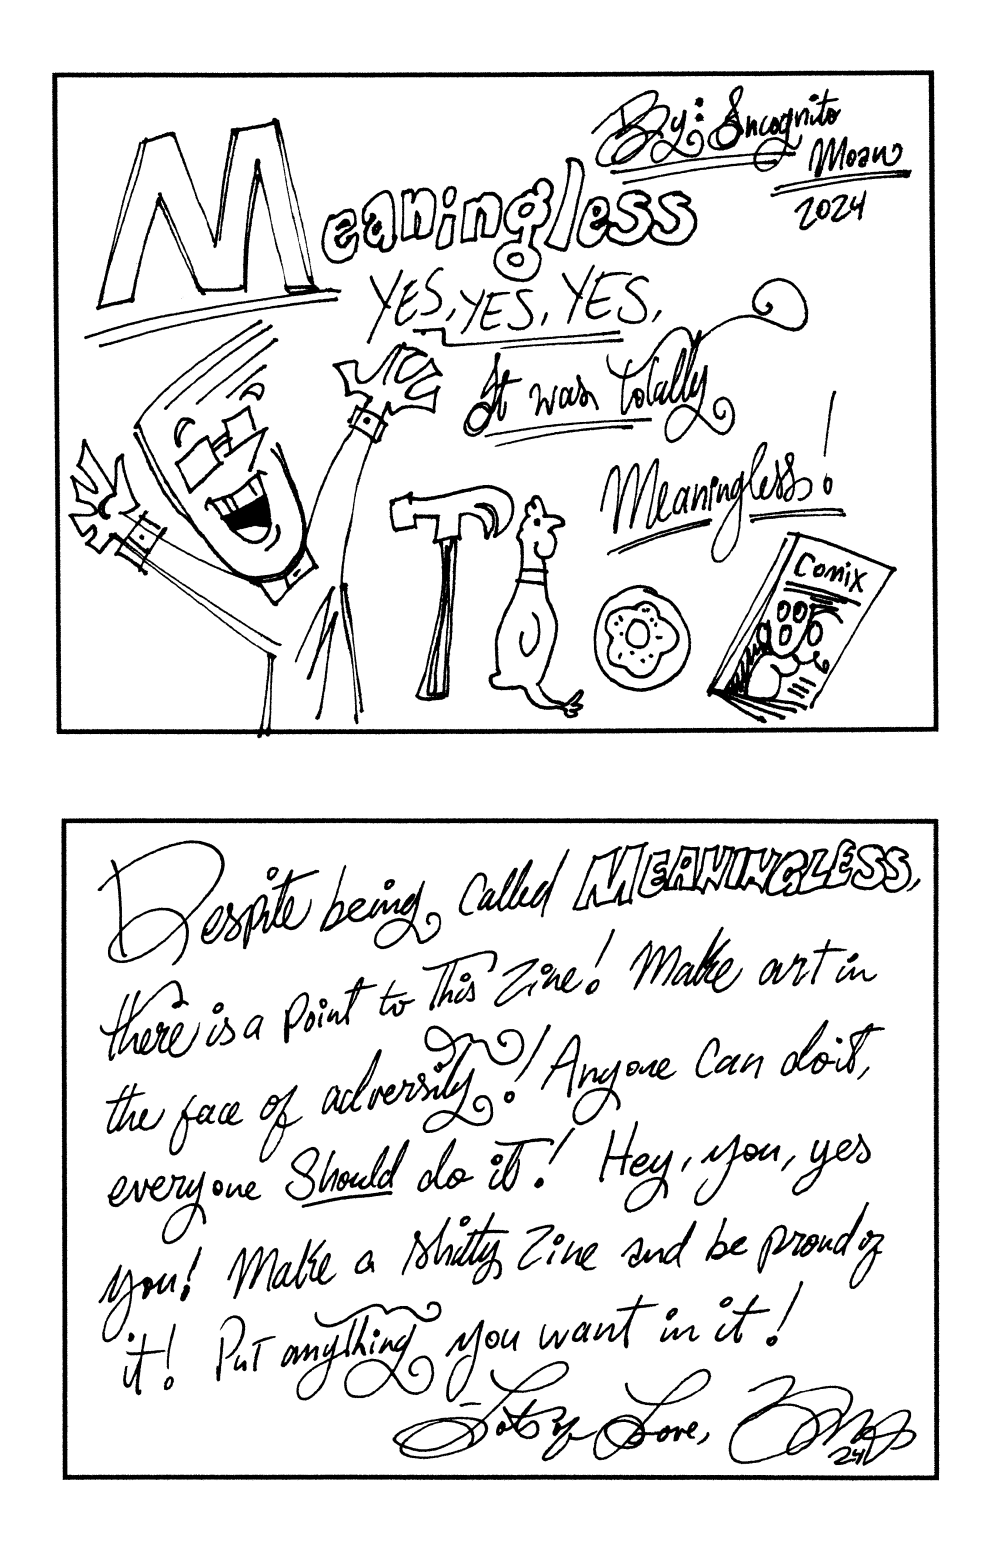 By: Incognito
Moan
2024
Meaningless
YES, YES, YES,
It was totally
Meaningless!
Comix
Despite being called MEANINGLESS,
there is a point to this zine! Make art in
the face of adversity! Anyone can do it,
everyone should do it! Hey, you, yes
you! Make a shitty zine and be proud of
it! Put anything you want in it!
-Lots of Love,
24